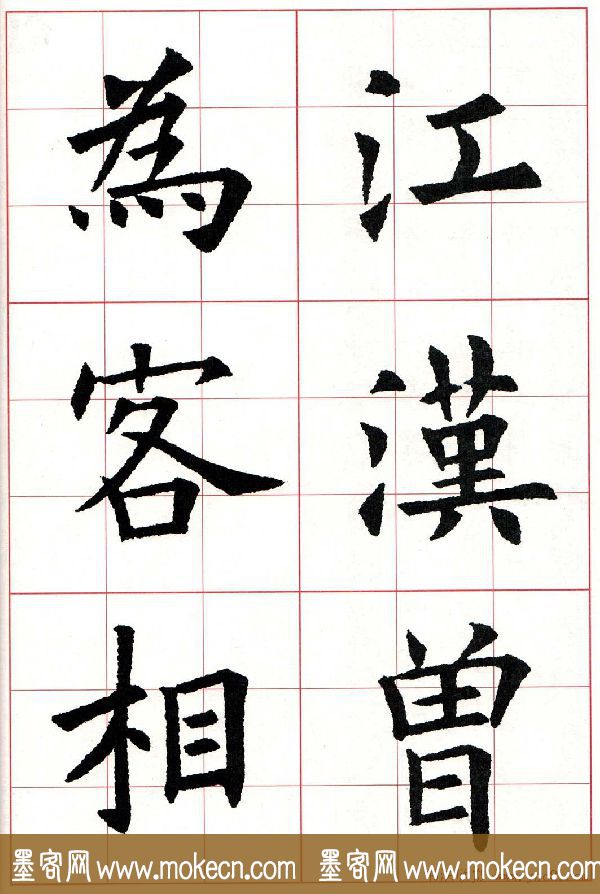 江漢曾
為客相
墨客网 www.mokecn.com 墨客网 www.mokecn.com